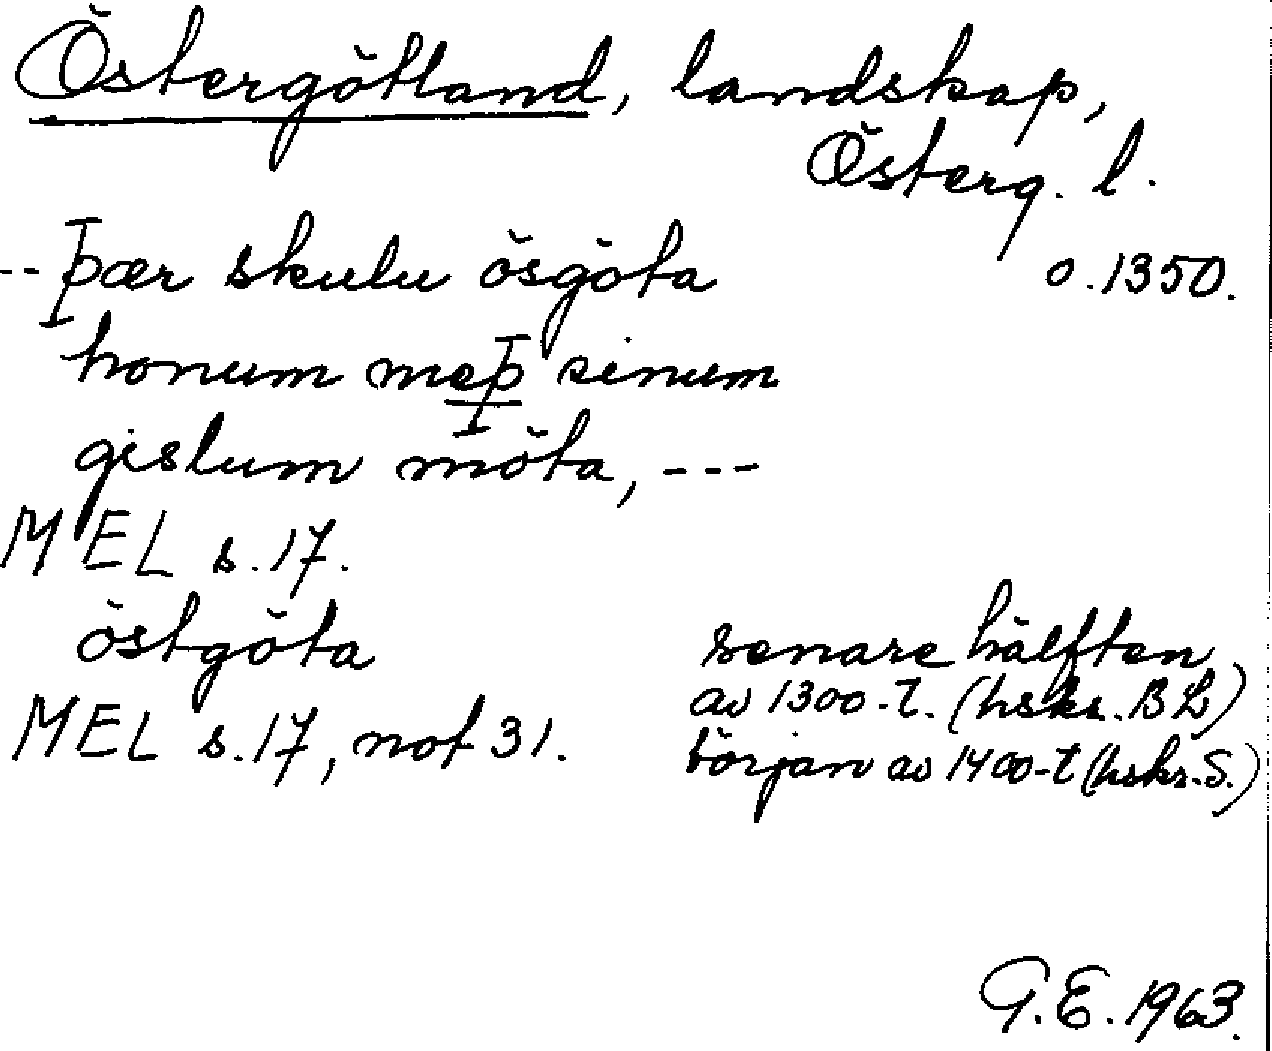 Östergötland, landskap,
Österg. l.
-- Þær skulu ösgöta o. 1350.
honum meþ sinum
gislum möta, ---
MEL s. 17.
östgöta senare hälften
av 1300-t. (hskr. B L)
MEL s. 17, not 31. början av 1400-t (hskr. S.)
G.E. 1963.